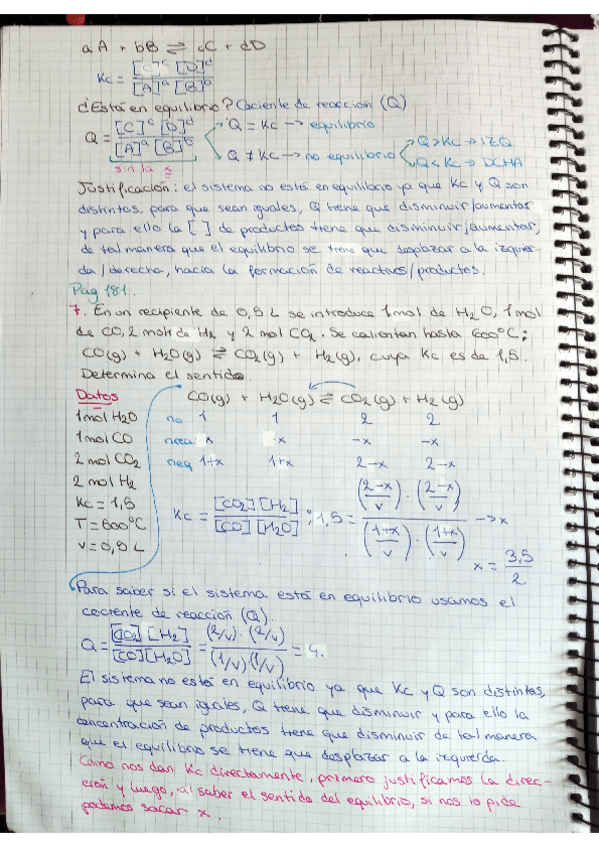 aA + bB ⇌ cC + dD
Kc = [C]^c [D]^d / [A]^a [B]^b
¿Está en equilibrio? Cociente de reacción (Q)
Q = [C]^c [D]^d / [A]^a [B]^b
Q = Kc → equilibrio
Q ≠ Kc → no equilibrio
Q > Kc → IZQ
Q < Kc → DCHA
sin la
Justificación: el sistema no está en equilibrio ya que Kc y Q son
distintas, para que sean iguales, Q tiene que disminuir/aumentar
y para ello la [ ] de productos tiene que disminuir/aumentar,
de tal manera que el equilibrio se tiene que desplazar a la izquier-
da/derecha, hacia la formación de reactivos/productos.
Pag 181.
7. En un recipiente de 0,5 L se introduce 1mol de H2O, 1mol
de CO, 2 mol de H2 y 2 mol CO2. Se calientan hasta 600°C;
CO(g) + H2O(g) ⇌ CO2(g) + H2(g), cuya Kc es de 1,5.
Determina el sentido.
Datos
CO(g) + H2O(g) ⇌ CO2(g) + H2(g)
1mol H2O
no 1 1 2 2
1mol CO
nrea x x -x -x
2 mol CO2
neq 1+x 1+x 2-x 2-x
2 mol H2
Kc = 1,5
T = 600°C
V = 0,5 L
Kc = [CO2][H2] / [CO][H2O] ; 1,5 = (2-x/v) · (2-x/v) / (1+x/v) · (1+x/v) → x
x = 3,5/2
Para saber si el sistema está en equilibrio usamos el
cociente de reacción (Q).
Q = [CO2][H2] / [CO][H2O] = (2/v) · (2/v) / (1/v)(1/v) = 4.
El sistema no está en equilibrio ya que Kc y Q son distintas,
para que sean iguales, Q tiene que disminuir y para ello la
concentración de productos tiene que disminuir de tal manera
que el equilibrio se tiene que desplazar a la izquierda.
Cómo nos dan Kc directamente, primero justificamos la direc-
ción y luego, al saber el sentido del equilibrio, si nos lo pide
podemos sacar x.